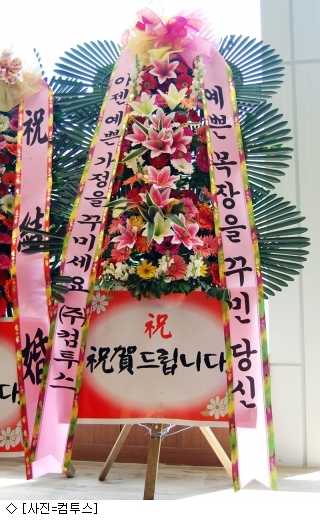 예쁜 목장을 꾸민 당신
이젠 예쁜 가정을 꾸미세요 (주)컴투스
祝
祝賀드립니다
祝 結 婚
◇ [사진=컴투스]